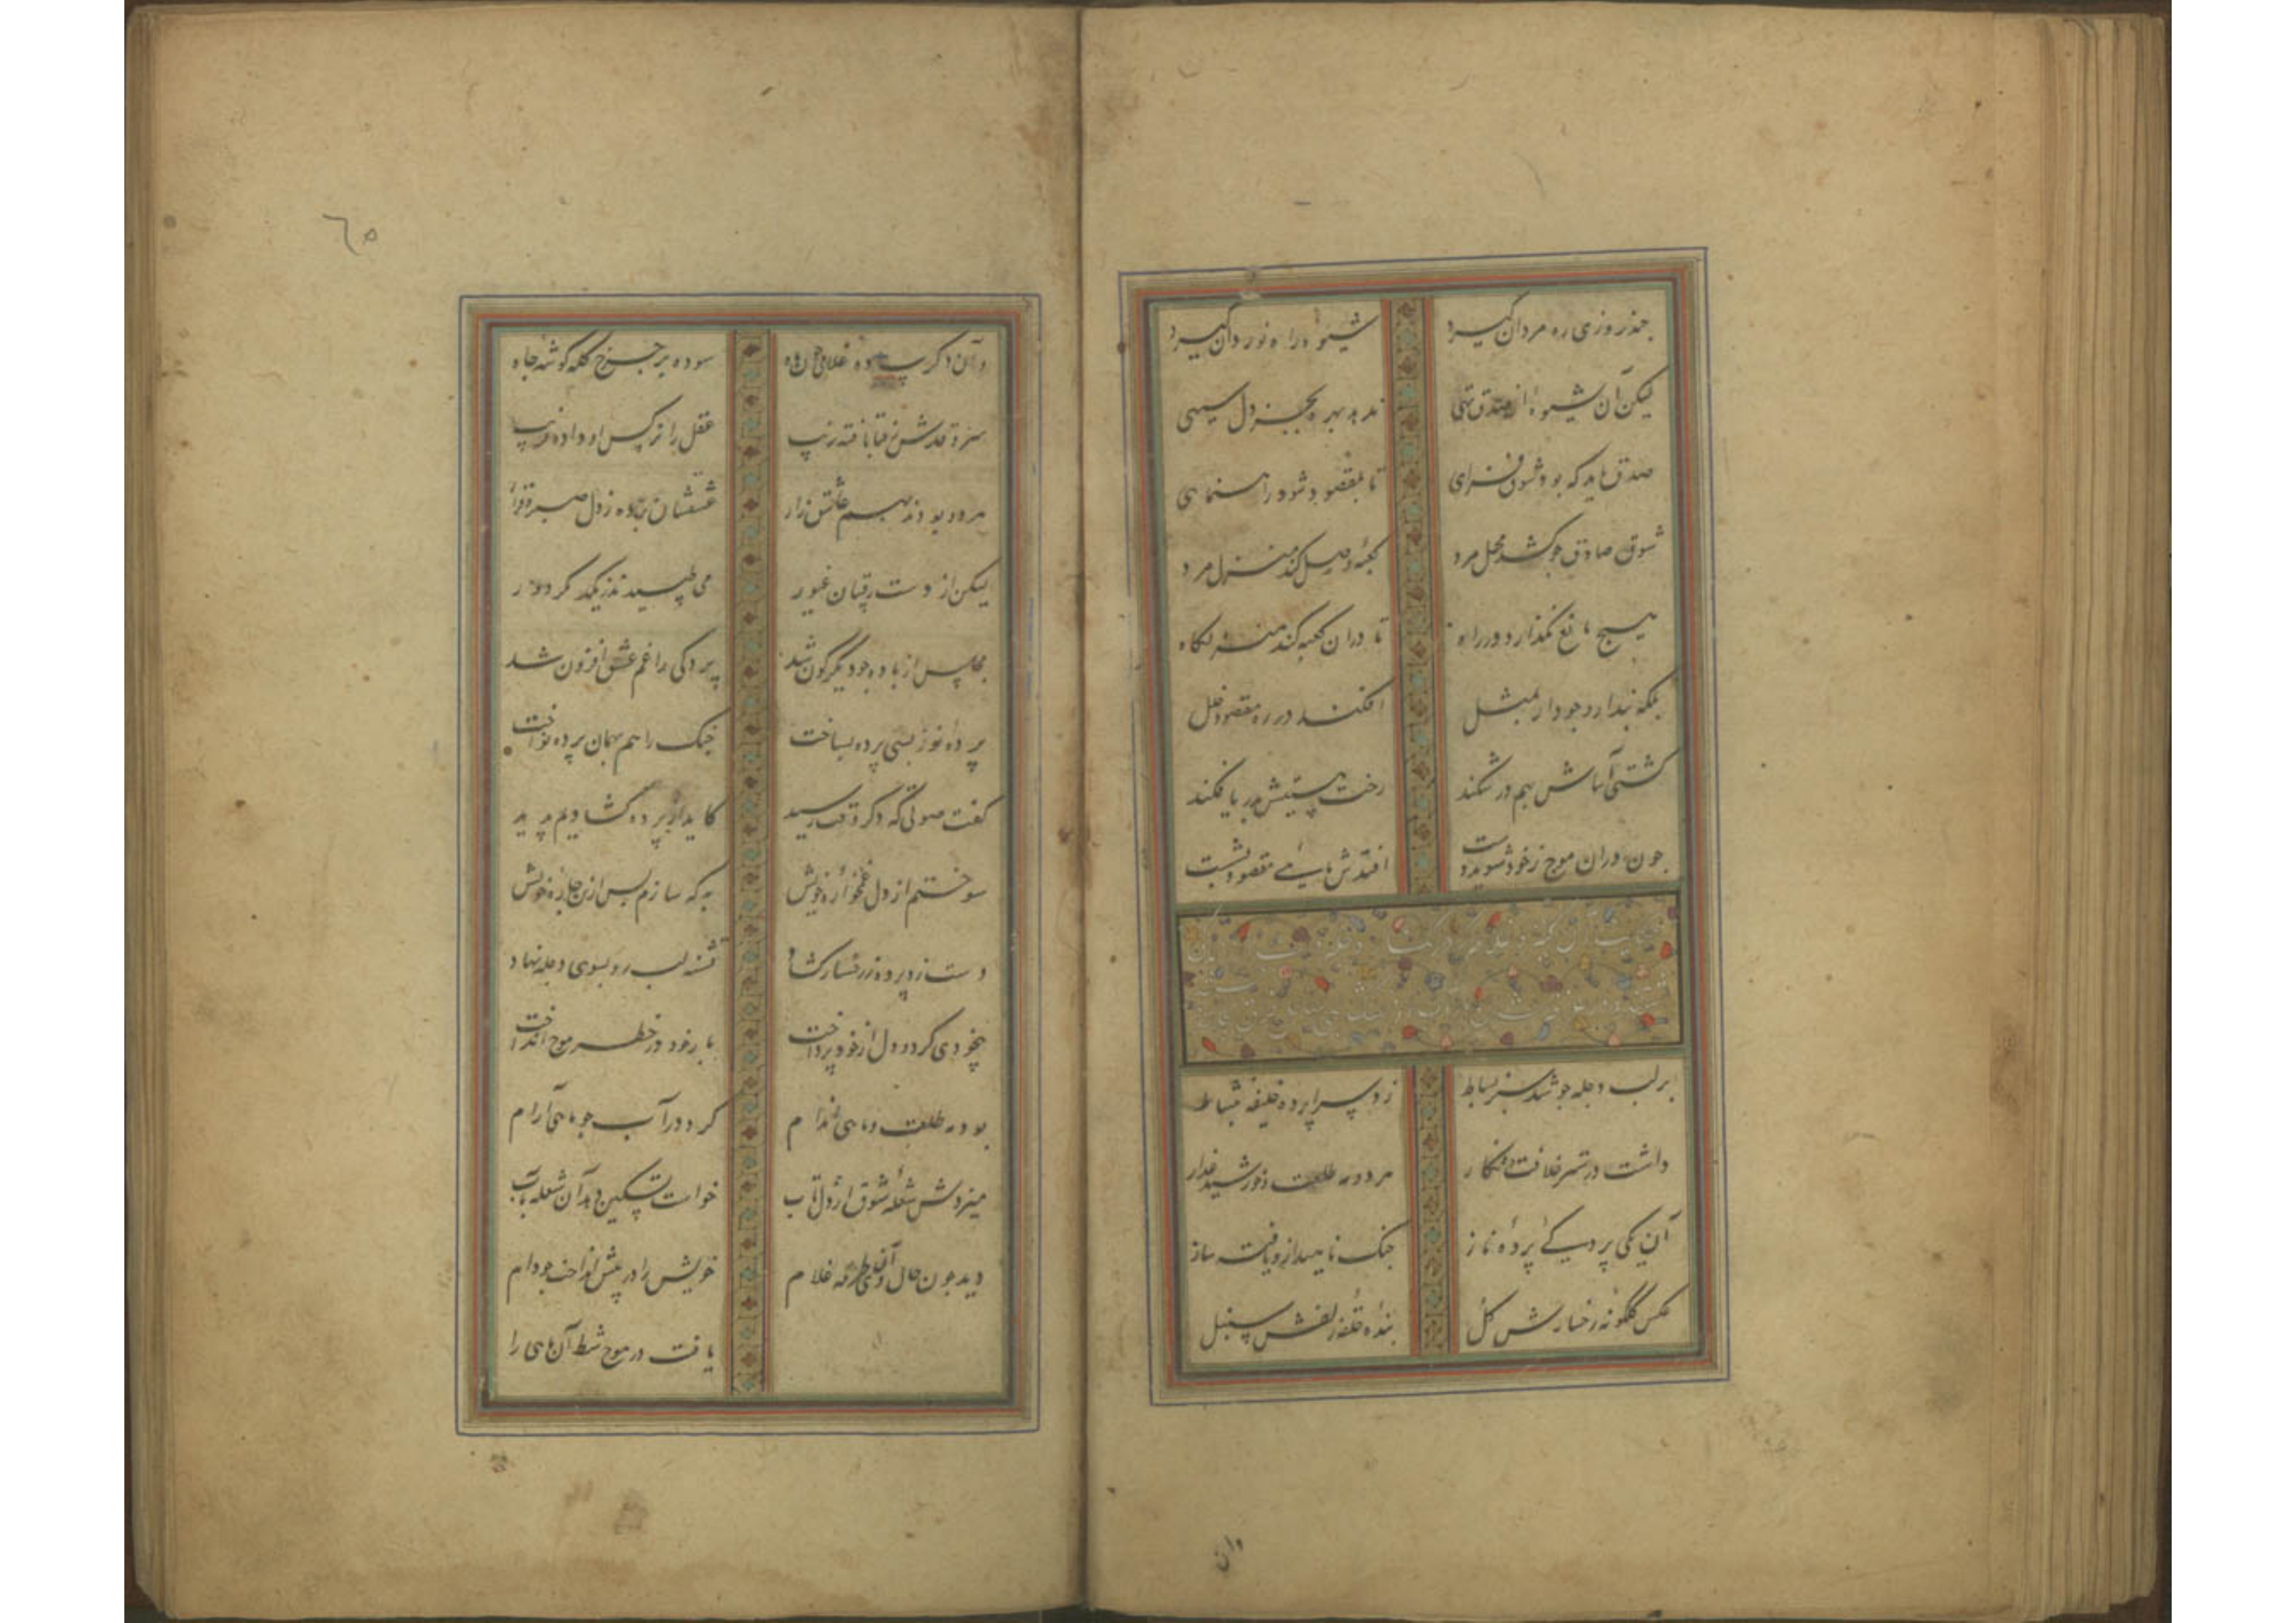 چند روزی ره مردان گیرد شیوه راه نوردان گیرد
لیکن آن شیوه از صدق تهی ندهد بهره بجز دل سیهی
صدق باید که بود شوق فزای تا بمقصود شود راهنمای
شوق صادق چو کشد محمل مرد کعبه وصل کند منزل مرد
هیچ مانع نگذارد در راه تا در آن کعبه کند منزلگاه
بلکه نبدارد وجود ار بمثل افکند در ره مقصود خلل
کشتی آساش بهم در شکند رخت هستیش بدریا فکند
چون در آن موج ز خود شوید دست افتدش مقصود بشست
حکایت آن کنیزک و غلام که در
بر لب دجله چو شد سبز بساط زد سراپرده خلیفه بنشاط
داشت در قصر خلافت دو نگار هر دو مه طلعت و خورشید عذار
آن یکی پردگی پرده ناز چنگ ناهید ازو یافته ساز
عکس گلگونه رخسارش گل بنده حلقه زلفش سنبل
وان
٦٥
وآن دگر ساده غلامی چون ماه سوده بر چرخ کله گوشه جاه
سرو قدش ز قبا یافته زیب عقل را نرگس او داده فریب
هر دو بودند بهم عاشق زار عشقشان برده ز دل صبر و قرار
لیکن از دست رقیبان غیور می طپیدند ز یکدیگر دور
مجلس از باده چو دیگرگون شد پردگی را غم عشق افزون شد
پرده نو ز پسی پرده بساخت چنگ را هم بهمان پرده نواخت
گفت صوتی که دگر وقت رسید کاید از پرده گشادیم پدید
سوختم از دل غمخواره خویش به که سازم پس ازین چاره خویش
دست زد پرده ز رخسار گشاد تشنه لب رو بسوی دجله نهاد
بیخودی کرد و دل از خود پرداخت بار خود در خطر موج انداخت
بود مه طلعت و ماهی اندام کرد در آب چو ماهی آرام
میزدش شعله شوق از دل تاب خواست تسکین دهد آن شعله بآب
دید چون حال وی آن طرفه غلام خویش را در پیش انداخت چو دام
یافت در موج شط آن ماهی را